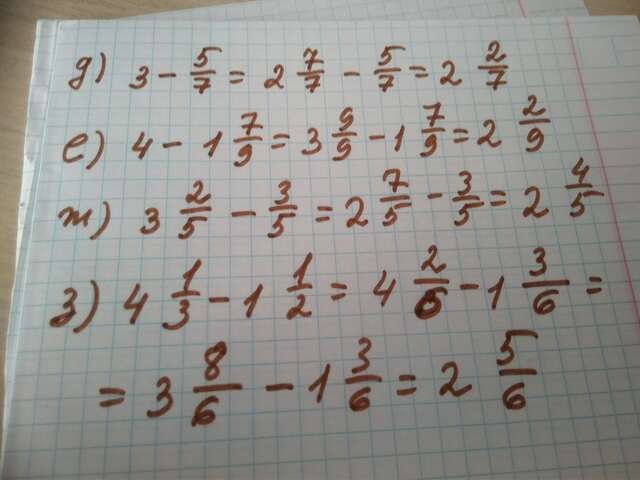 д) 3 - 5/7 = 2 7/7 - 5/7 = 2 2/7
е) 4 - 1 7/9 = 3 9/9 - 1 7/9 = 2 2/9
ж) 3 2/5 - 3/5 = 2 7/5 - 3/5 = 2 4/5
з) 4 1/3 - 1 1/2 = 4 2/6 - 1 3/6 =
= 3 8/6 - 1 3/6 = 2 5/6